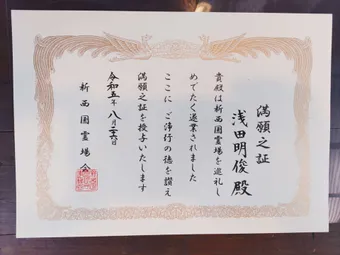 満願之証
浅田明俊殿
貴殿は新西国霊場を巡礼し
めでたく選業されました
ここに ご浄行の徳を讃え
満願之証を授与いたします
令和五年八月二十六日
新西国霊場会